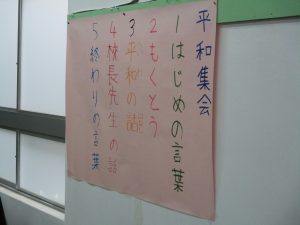 平和集会
1はじめの言葉
2もくとう
3平和の話
4校長先生の話
5終わりの言葉